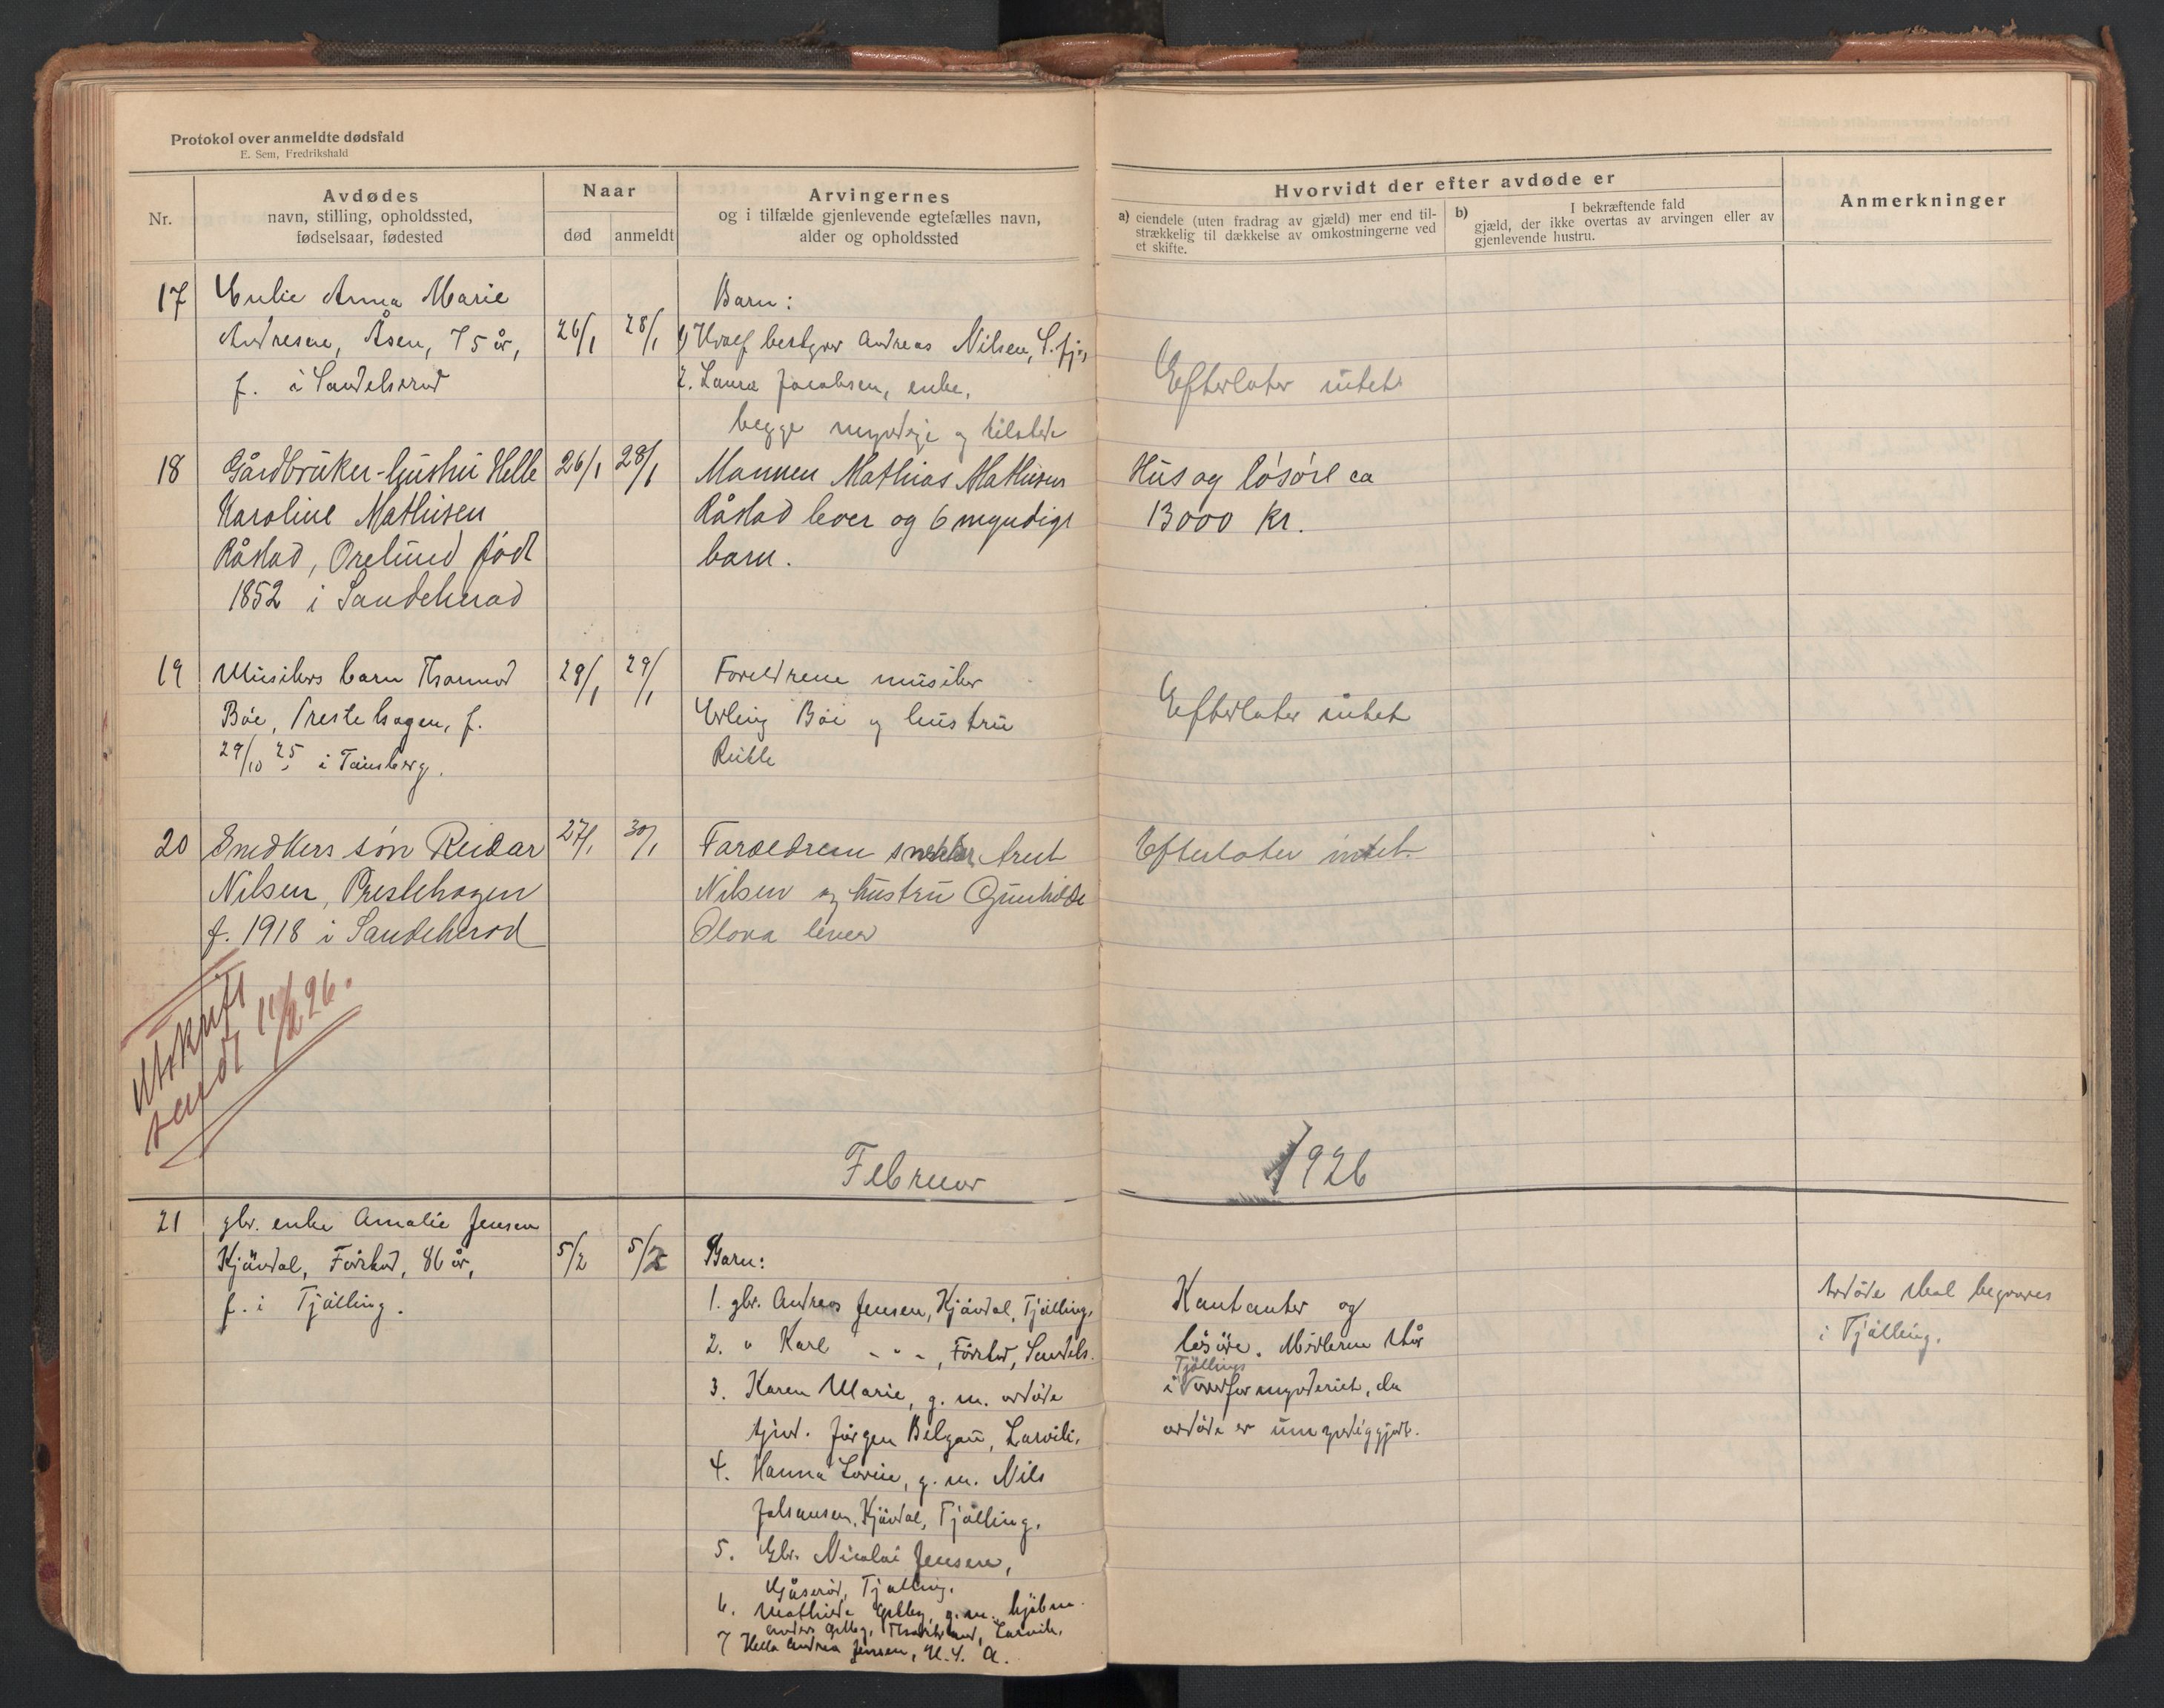 Protokol over anmeldte dødsfald
E. Sem, Fredrikshald
Nr.
Avdødes
navn, stilling, opholdssted,
fødselsaar, fødested
Naar
død
anmeldt
Arvingernes
og i tilfælde gjenlevende egtefælles navn,
alder og opholdssted
Hvorvidt der efter avdøde er
a) eiendele (uten fradrag av gjæld) mer end til-
strækkelig til dækkelse av omkostningerne ved
et skifte.
b) I bekræftende fald
gjæld, der ikke overtas av arvingen eller av
gjenlevende hustru.
Anmerkninger
17
Anna Marie
Andresen, Åsen, 75 år,
f. i Sandeherad
26/1
28/1
Barn:
1) Hvalf bestyrer Andreas Nilsen, S.fj.,
2. Laura Jacobsen, enke,
begge myndige og tilstede
Efterlater intet
18
Gårdbruker-hustru Helle
Karoline Mathisen
Råstad, Orelund född
1852 i Sandeherad
26/1
28/1
Mannen Mathias Mathisen
Råstad lever og 6 myndige
barn.
Hus og løsøre ca
13000 kr.
19
Musikers barn Thormod
Bøe, Prestehagen, f.
29/10 25 i Tønsberg.
28/1
29/1
Foreldrene musiker
Erling Bøe og hustru
Efterlater intet
20
Snedkers søn Reidar
Nilsen, Prestehagen
f. 1918 i Sandeherad
27/1
30/1
Foreldrene snekker Arnt
Nilsen og hustru Gunhilde
Olova lever
Efterlater intet.
Utskrift
sendt 11/2 26.
Februar
1926
21
gbr. enke Amalie Jensen
Kjøndal, Førstad, 86 år,
f. i Tjølling.
5/2
5/2
Barn:
1. gbr. Andreas Jensen, Kjøndal, Tjølling,
2. " Karl - " -, Førstad, Sandeh.
3. Karen Marie, g. m. avdøde
Jørgen Belgau, Larvik,
4. Hanna Lovise, g. m. Nils
Johansen, Kjøndal, Tjølling.
5. Gbr. Nicolai Jensen,
Gåserød, Tjølling.
6. Mathilde g. m. kjøbm.
Anders Larvik,
7 Helle Andrea Jensen, U.S.A.
Kontanter og
løsøre. Midlerne står
Tjøllings
i overformynderiet, da
avdøde er umyndiggjort.
Avdøde skal begraves
i Tjølling.